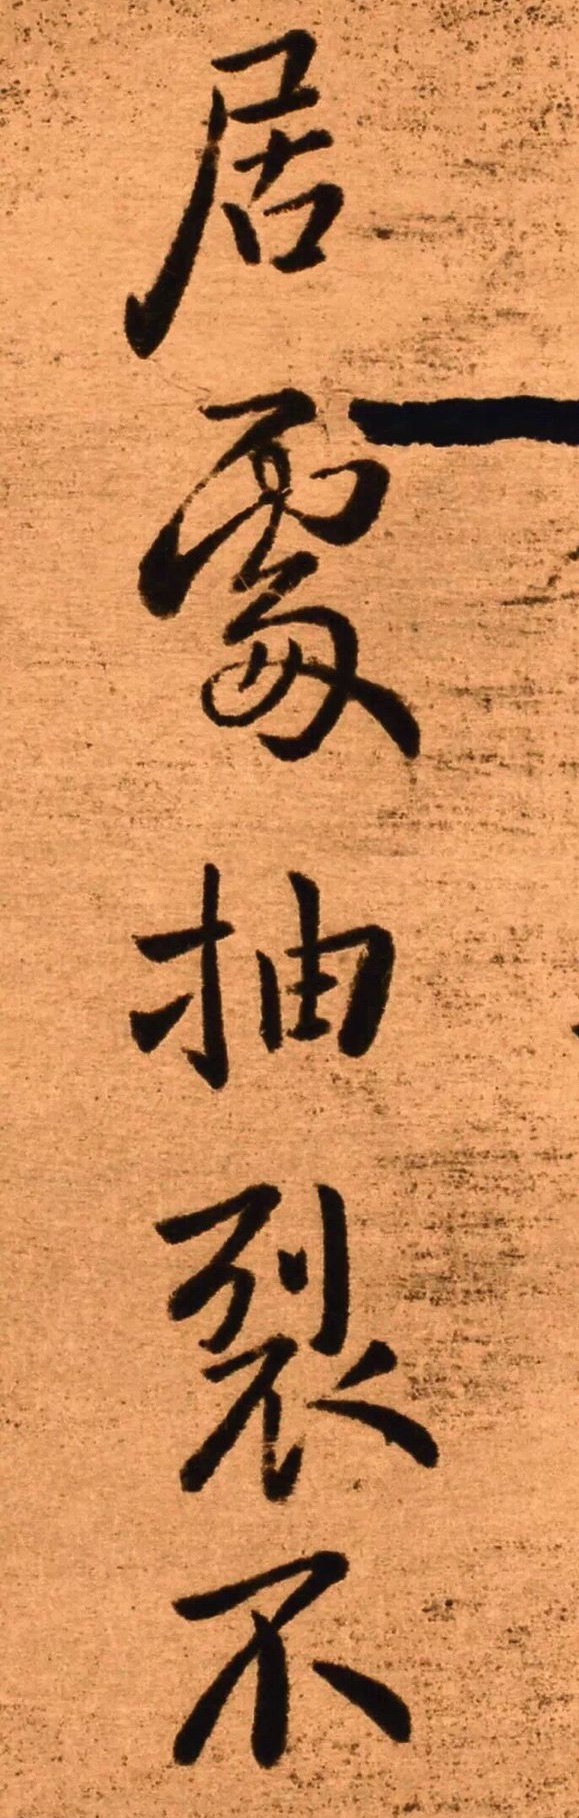 居憂抽裂不